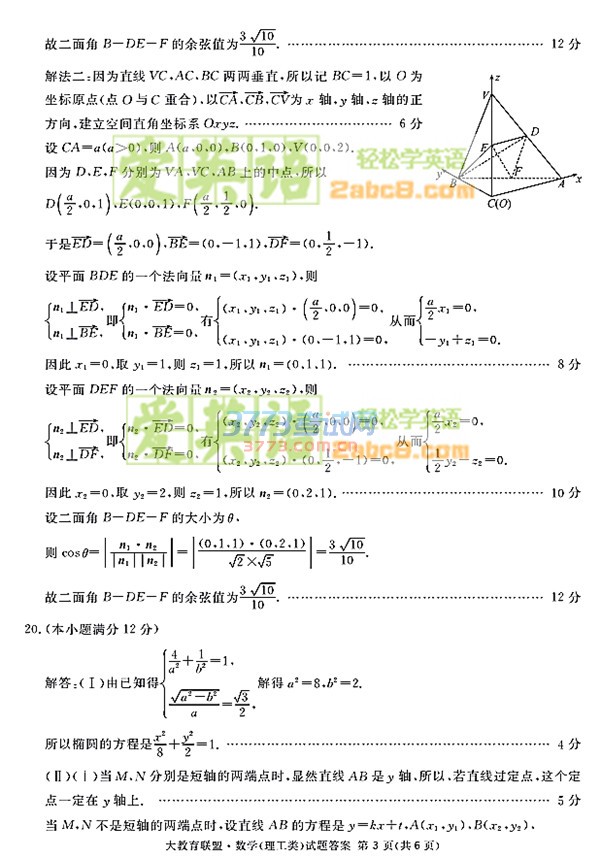 故二面角 B－DE－F 的余弦值为 3√10/10. ………… 12 分
解法二:因为直线 VC,AC,BC 两两垂直,所以记 BC=1,以 O 为
坐标原点(点 O 与 C 重合),以CA→,CB→,CV→为 x 轴,y 轴,z 轴的正
方向,建立空间直角坐标系 Oxyz. ………… 6 分
设 CA=a(a>0),则 A(a,0,0),B(0,1,0),V(0,0,2).
因为 D,E,F 分别为 VA,VC,AB 上的中点,所以
D(a/2,0,1),E(0,0,1),F(a/2,1/2,0).
z
V
E
D
y
B
F
A
x
C(O)
爱英语
轻松学英语
2abc8.com
于是ED→=(a/2,0,0),BE→=(0,-1,1),DF→=(0,1/2,-1).
设平面 BDE 的一个法向量 n₁=(x₁,y₁,z₁),则
{n₁⊥ED→, n₁⊥BE→, 即{n₁·ED→=0, n₁·BE→=0, 有{(x₁,y₁,z₁)·(a/2,0,0)=0, (x₁,y₁,z₁)·(0,-1,1)=0, 从而{a/2 x₁=0, -y₁+z₁=0.
因此 x₁=0,取 y₁=1,则 z₁=1,所以 n₁=(0,1,1). ………… 8 分
设平面 DEF 的一个法向量 n₂=(x₂,y₂,z₂),则
{n₂⊥ED→, n₂⊥DF→, 即{n₂·ED→=0, n₂·DF→=0, 有{(x₂,y₂,z₂)·(a/2,0,0)=0, (x₂,y₂,z₂)·(0,1/2,-1)=0, 从而{a/2 x₂=0, 1/2 y₂-z₂=0.
爱英语
3773考试网
3773.com.cn
轻松学英语
2abc8.com
因此 x₂=0,取 y₂=2,则 z₂=1,所以 n₂=(0,2,1). ………… 10 分
设二面角 B－DE－F 的大小为 θ,
则 cosθ=|n₁·n₂/(|n₁||n₂|)|=|(0,1,1)·(0,2,1)/(√2×√5)|=3√10/10.
故二面角 B－DE－F 的余弦值为 3√10/10. ………… 12 分
20.(本小题满分 12 分)
解答:(Ⅰ)由已知得{4/a²+1/b²=1, √(a²-b²)/a=√3/2, 解得 a²=8,b²=2.
所以椭圆的方程是 x²/8+y²/2=1. ………… 4 分
(Ⅱ)(ⅰ)当 M,N 分别是短轴的两端点时,显然直线 AB 是 y 轴,所以,若直线过定点,这个定
点一定在 y 轴上. ………… 5 分
当 M,N 不是短轴的两端点时,设直线 AB 的方程是 y=kx+t,A(x₁,y₁),B(x₂,y₂),
大教育联盟·数学(理工类)试题答案 第 3 页(共 6 页)